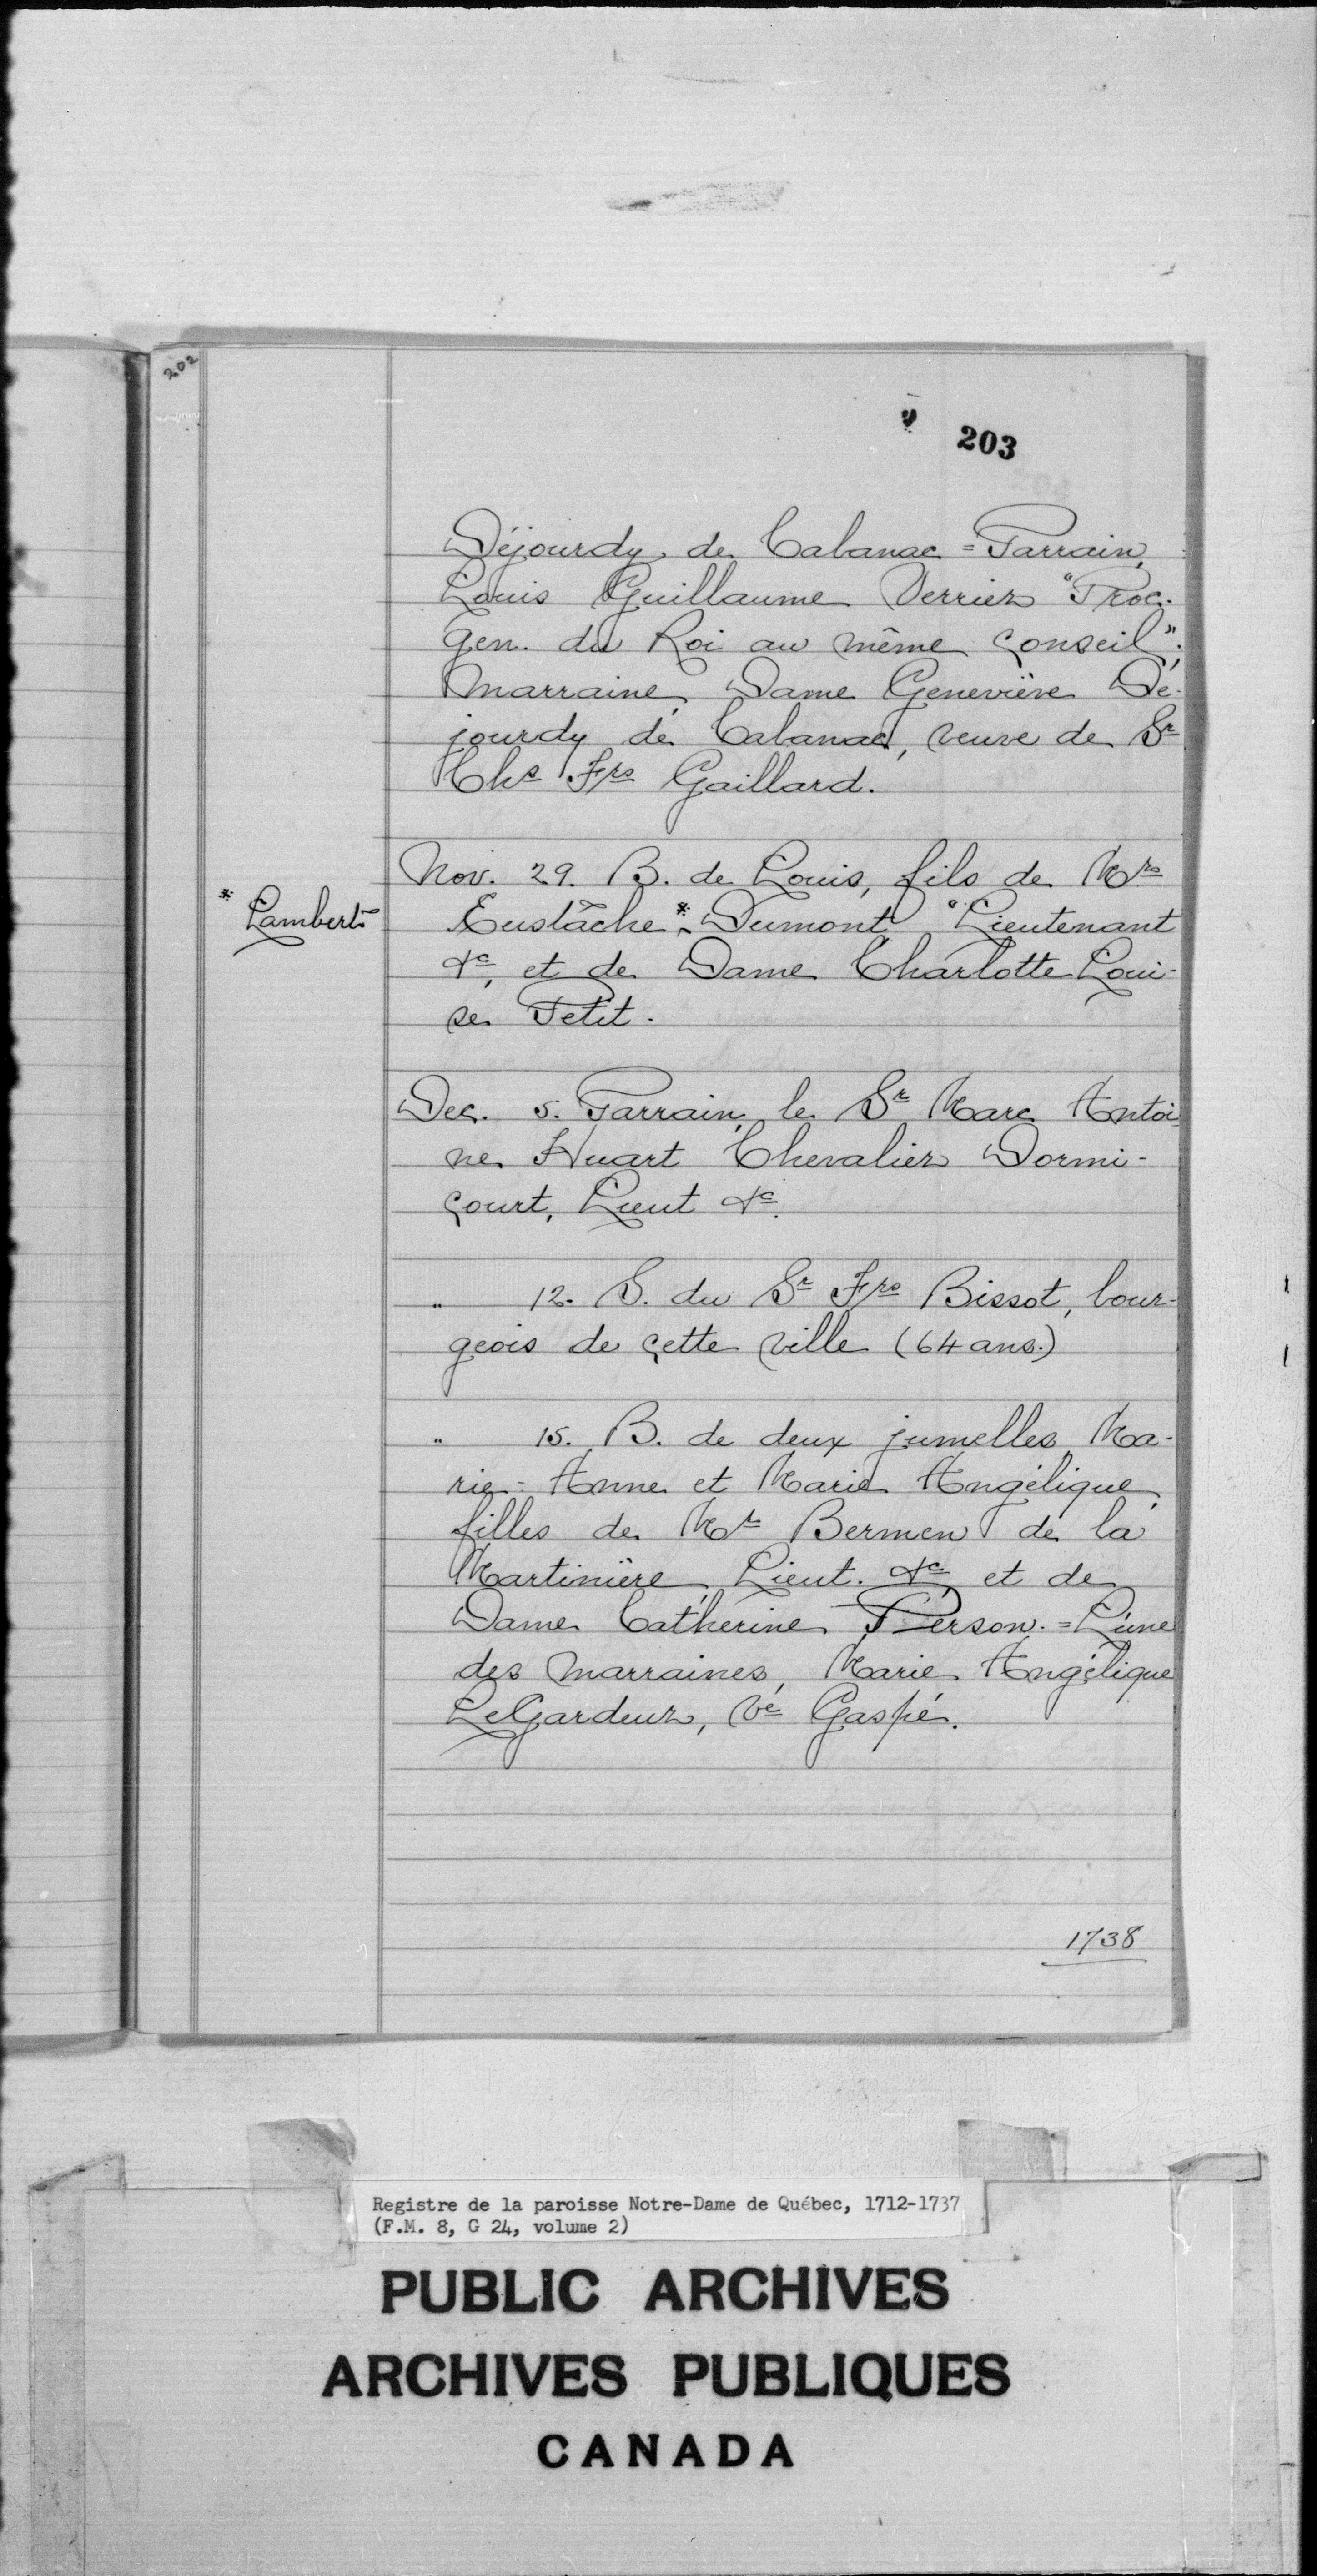 202
203
Déjourdy de Cabanac = Parrain,
Louis Guillaume Verrier "Proc.
Gen. du Roi au même conseil";
Marraine, Dame Geneviève Dé-
jourdy de Cabanac, veuve de Sr
Chs Frs Gaillard.
Nov. 29. B. de Louis, fils de Mre
* Lambert
Eustache * Dumont "Lieutenant
&c, et de Dame Charlotte Loui-
se Petit.
Dec. 5. Parrain, le Sr Marc Antoi
ne Huart Chevalier Dormi-
court, Lieut &c.
" 12. S. du Sr Frs Bissot, bour-
geois de cette ville (64 ans.)
" 15. B. de deux jumelles, Ma-
rie-Anne et Marie Angélique,
filles de Mr Bermen de la
Martinière, Lieut. &c, et de
Dame Catherine Person. = L'une
des marraines, Marie Angélique
LeGardeur, Ve Gaspé.
1738
Registre de la paroisse Notre-Dame de Québec, 1712-1737
(F.M. 8, G 24, volume 2)
PUBLIC ARCHIVES
ARCHIVES PUBLIQUES
CANADA